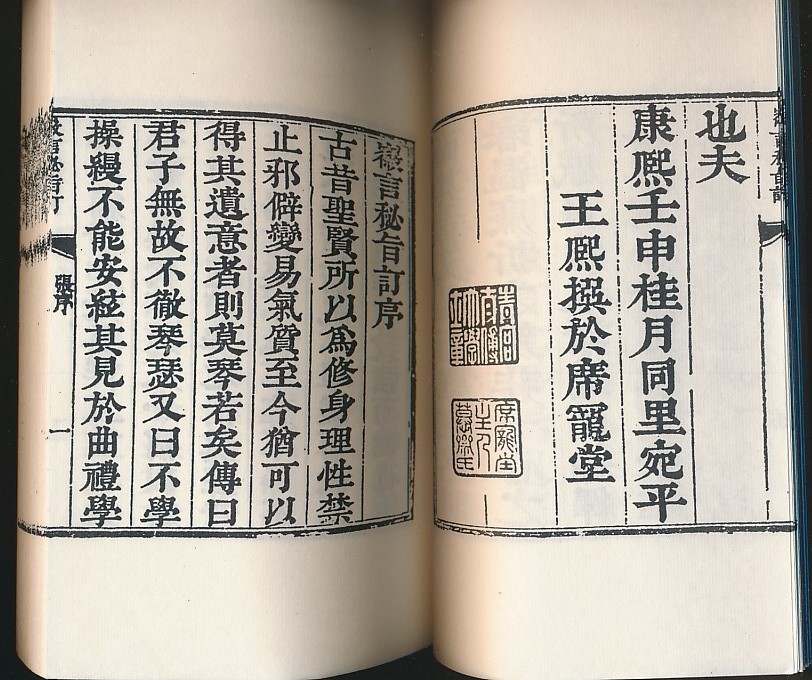 也夫
康熙壬申桂月同里宛平
王熙撰於席寵堂
徽言秘旨訂序
古昔聖賢所以爲修身理性禁
止邪僻變易氣質至今猶可以
得其遺意者則莫琴若矣傳曰
君子無故不徹琴瑟又曰不學
操縵不能安絃其見於曲禮學
徽言秘旨訂
張序
一